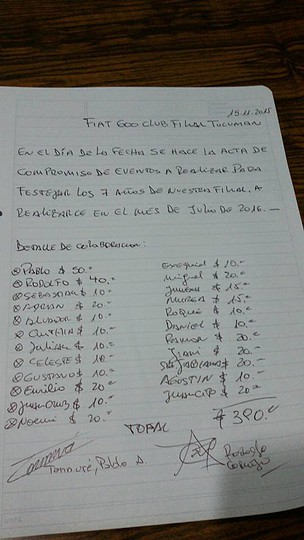 15.11.2015
FIAT 600 CLUB FILIAL TUCUMAN
EN EL DÍA DE LA FECHA SE HACE LA ACTA DE
COMPROMISO DE EVENTOS A REALIZAR PARA
FESTEJAR LOS 7 AÑOS DE NUESTRA FILIAL, A
REALIZARSE EN EL MES DE JULIO DE 2016.—
DETALLE DE COLABORACION:
PABLO $ 50.-
RODOLFO $ 40.-
SEBASTIAN $ 10.-
ADRIAN $ 20.-
$ 10.-
CINTHIA $ 10.-
Julian $ 10.-
CELESTE $ 10.-
GUSTAVO $ 10.-
Emilio $ 20.-
JUAN CRUZ $ 10.-
Noemi $ 20.-
EZEQUIEL $ 10.-
Miguel $ 20.-
Jimena $ 15.-
$ 15.-
ROQUE $ 10.-
DANIEL $ 10.-
$ 20.-
$ 20.-
$ 20.-
AGUSTIN $ 10.-
JUANCITO $ 20.-
TOTAL $ 390.-
Pablo A.
Rodolfo